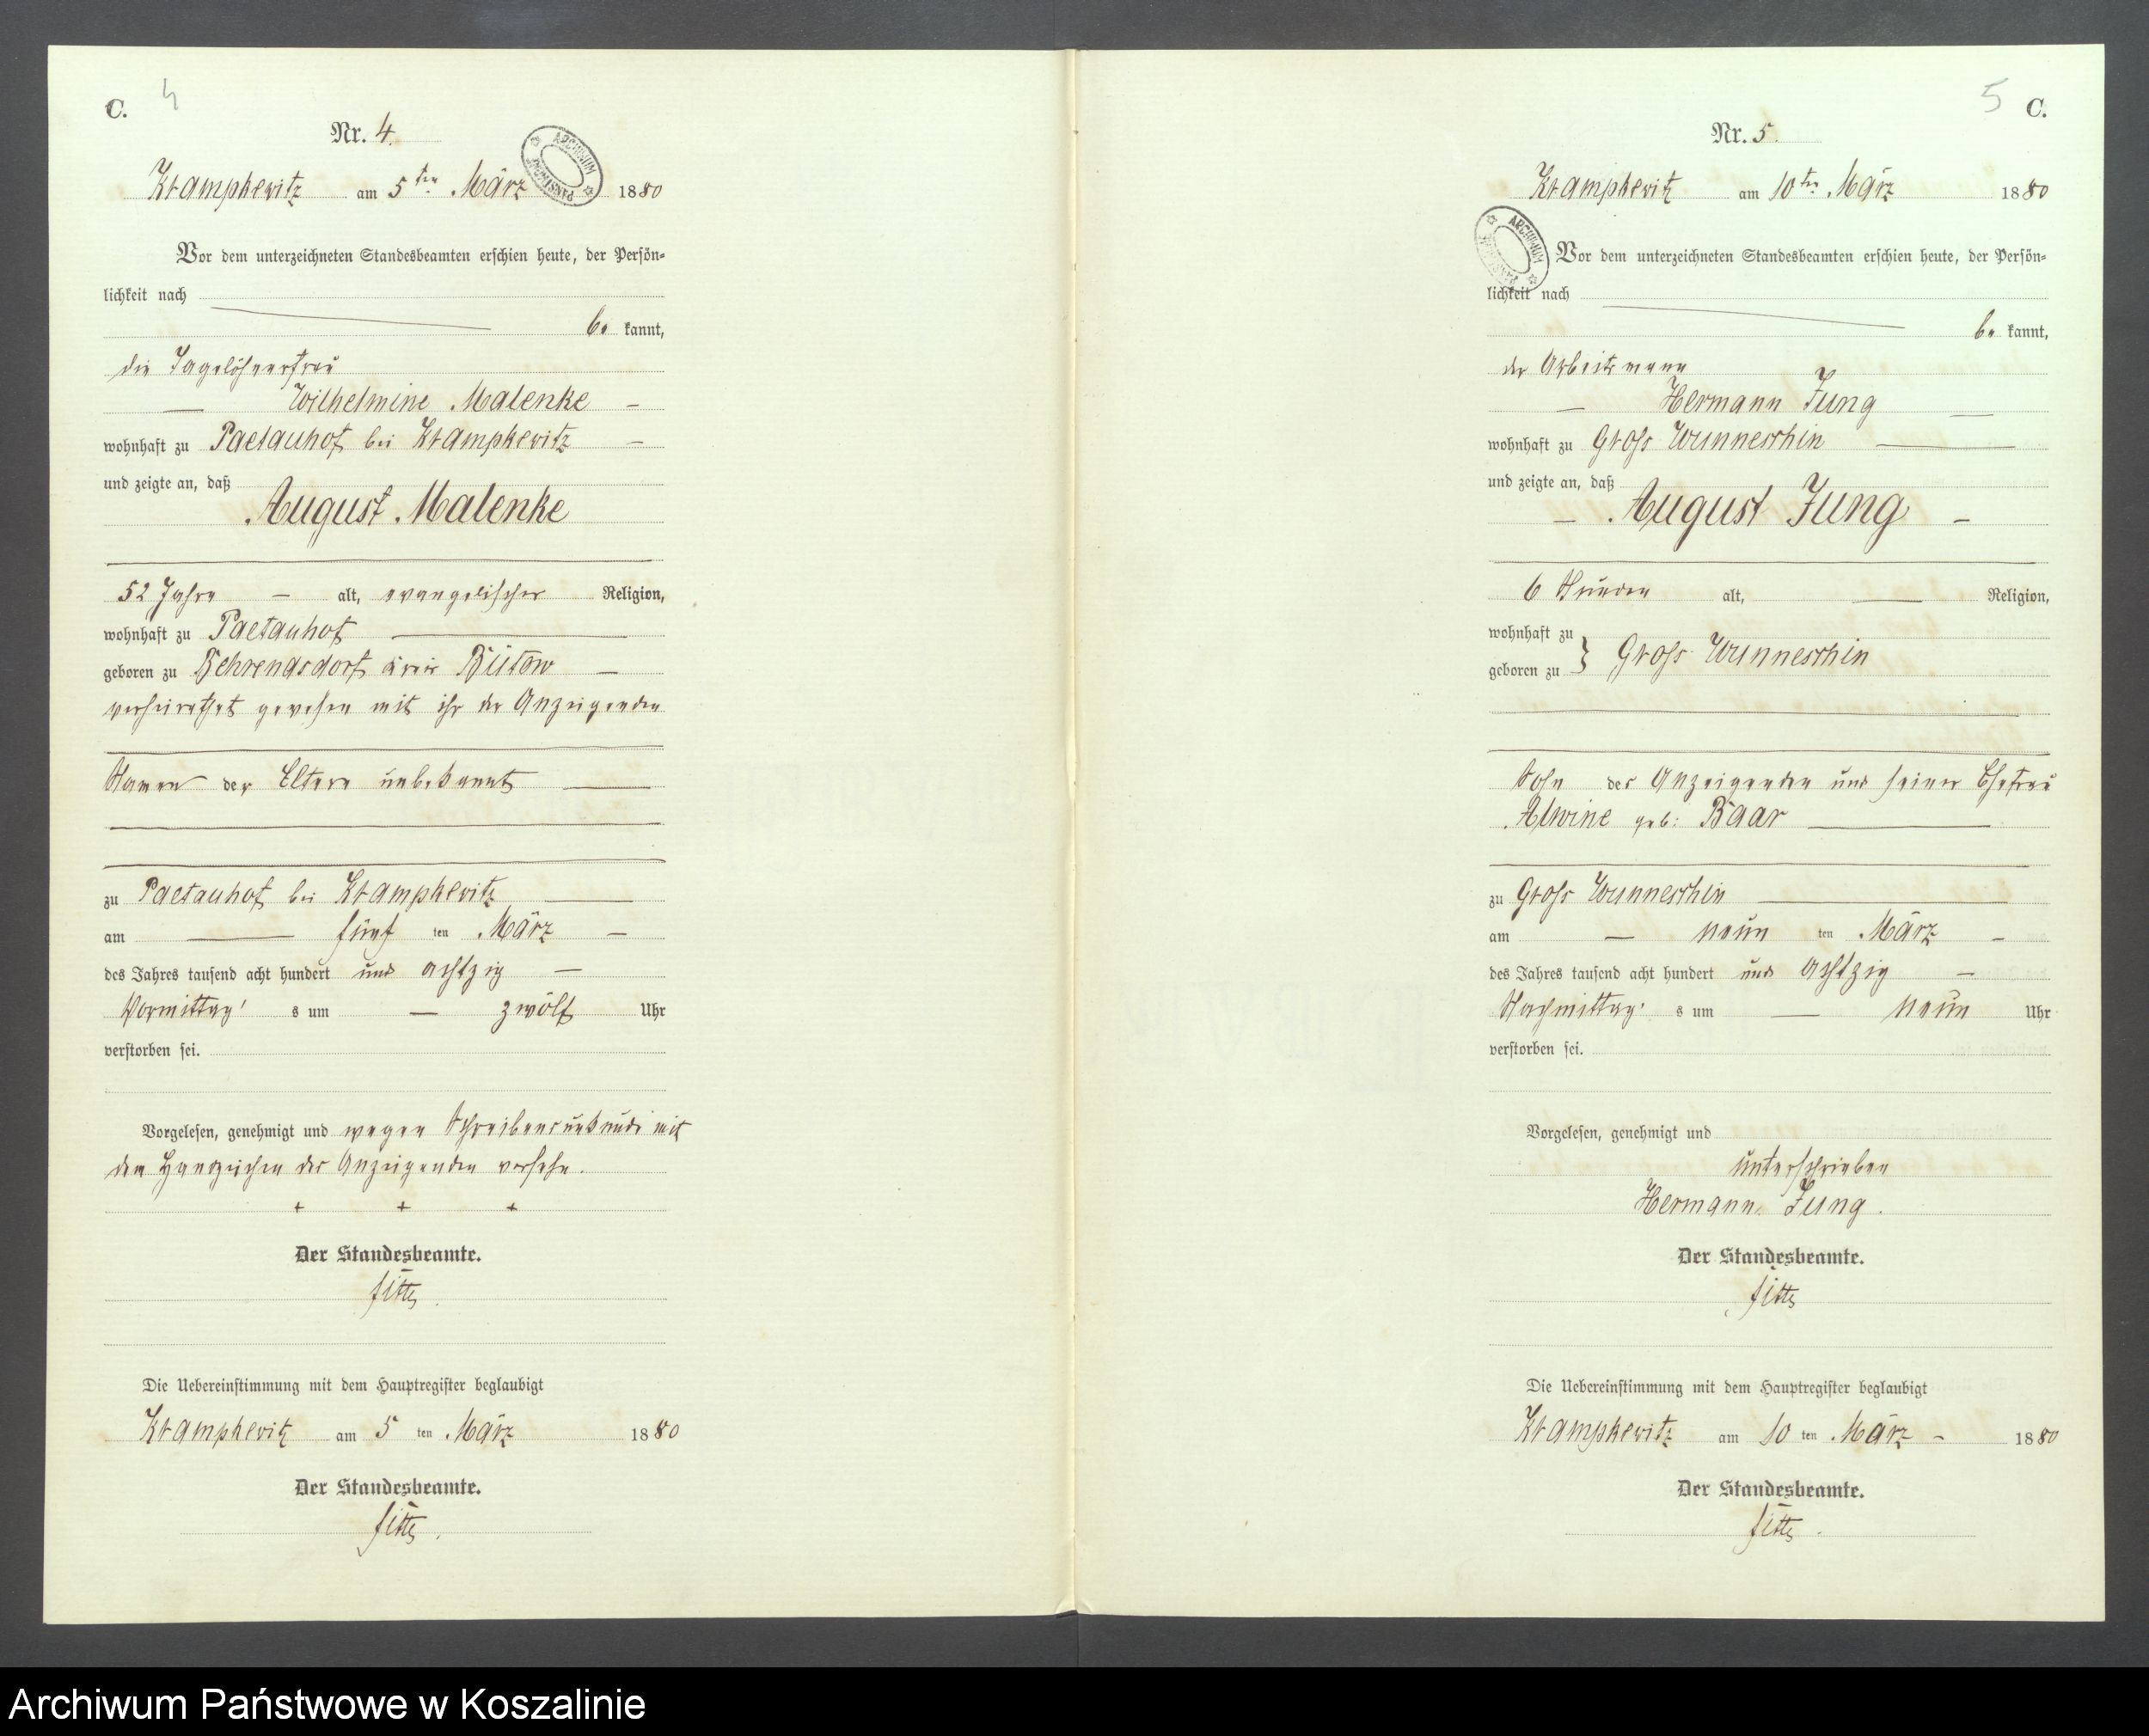 C. 4
Nr. 4.
ARCHIWUM PAŃSTWOWE
Krampkewitz am 5ten März 1880
Vor dem unterzeichneten Standesbeamten erschien heute, der Persön-
lichkeit nach
be kannt,
die Tagelöhnerfrau
Wilhelmine Malenke
wohnhaft zu Paetauhof bei Krampkewitz
und zeigte an, daß
August Malenke
52 Jahre alt, evangelischer Religion,
wohnhaft zu Paetauhof
geboren zu Behrendsdorf Kreis Bütow
verheirathet gewesen mit ihr der Anzeigenden
Namen der Eltern unbekannt
zu Paetauhof bei Krampkewitz
am fünf ten März
des Jahres tausend acht hundert und achtzig
Vormittag s um zwölf Uhr
verstorben sei.
Vorgelesen, genehmigt und wegen Schreibensunkunde mit
den Handzeichen der Anzeigenden versehn.
+ + +
Der Standesbeamte.
Die Uebereinstimmung mit dem Hauptregister beglaubigt
Krampkewitz am 5 ten März 1880
Der Standesbeamte.
5 C.
Nr. 5.
Krampkewitz am 10ten März 1880
ARCHIWUM PAŃSTWOWE
Vor dem unterzeichneten Standesbeamten erschien heute, der Persön-
lichkeit nach
be kannt,
der Arbeitsmann
Hermann Jung
wohnhaft zu Gross Wunneschin
und zeigte an, daß
August Jung
6 Stunden alt, Religion,
wohnhaft zu
geboren zu } Gross Wunneschin
Sohn des Anzeigenden und seiner Ehefrau
Alwine geb: Baar
zu Gross Wunneschin
am neun ten März
des Jahres tausend acht hundert und achtzig
Nachmittag s um neun Uhr
verstorben sei.
Vorgelesen, genehmigt und
unterschrieben
Hermann Jung.
Der Standesbeamte.
Die Uebereinstimmung mit dem Hauptregister beglaubigt
Krampkewitz am 10 ten März 1880
Der Standesbeamte.
Archiwum Państwowe w Koszalinie